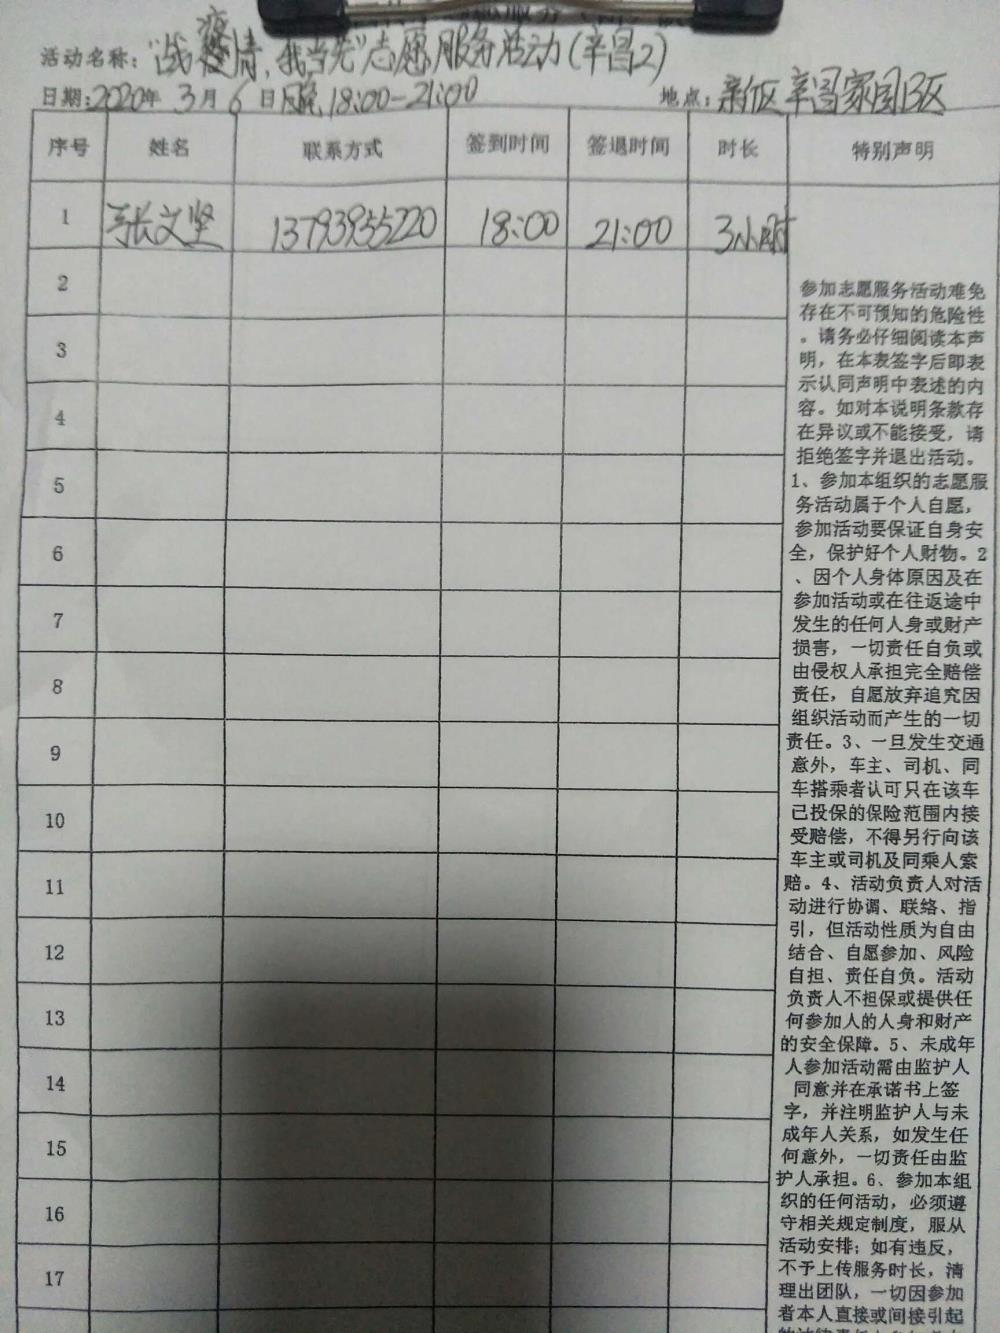 活动名称："战疫情，我当先"志愿服务活动(辛昌2)
日期：2020年 3月 6日 晚 18:00-21:00 地点：新区辛昌家园B区
序号 姓名 联系方式 签到时间 签退时间 时长 特别声明
1 张文坚 13793955220 18:00 21:00 3小时
2
3
4
5
6
7
8
9
10
11
12
13
14
15
16
17
参加志愿服务活动难免
存在不可预知的危险性
。请务必仔细阅读本声
明，在本表签字后即表
示认同声明中表述的内
容。如对本说明条款存
在异议或不能接受，请
拒绝签字并退出活动。
1、参加本组织的志愿服
务活动属于个人自愿，
参加活动要保证自身安
全，保护好个人财物。2
、因个人身体原因及在
参加活动或在往返途中
发生的任何人身或财产
损害，一切责任自负或
由侵权人承担完全赔偿
责任，自愿放弃追究因
组织活动而产生的一切
责任。3、一旦发生交通
意外，车主、司机、同
车搭乘者认可只在该车
已投保的保险范围内接
受赔偿，不得另行向该
车主或司机及同乘人索
赔。4、活动负责人对活
动进行协调、联络、指
引，但活动性质为自由
结合、自愿参加、风险
自担、责任自负。活动
负责人不担保或提供任
何参加人的人身和财产
的安全保障。5、未成年
人参加活动需由监护人
同意并在承诺书上签
字，并注明监护人与未
成年人关系，如发生任
何意外，一切责任由监
护人承担。6、参加本组
织的任何活动，必须遵
守相关规定制度，服从
活动安排；如有违反，
不予上传服务时长，清
理出团队，一切因参加
者本人直接或间接引起